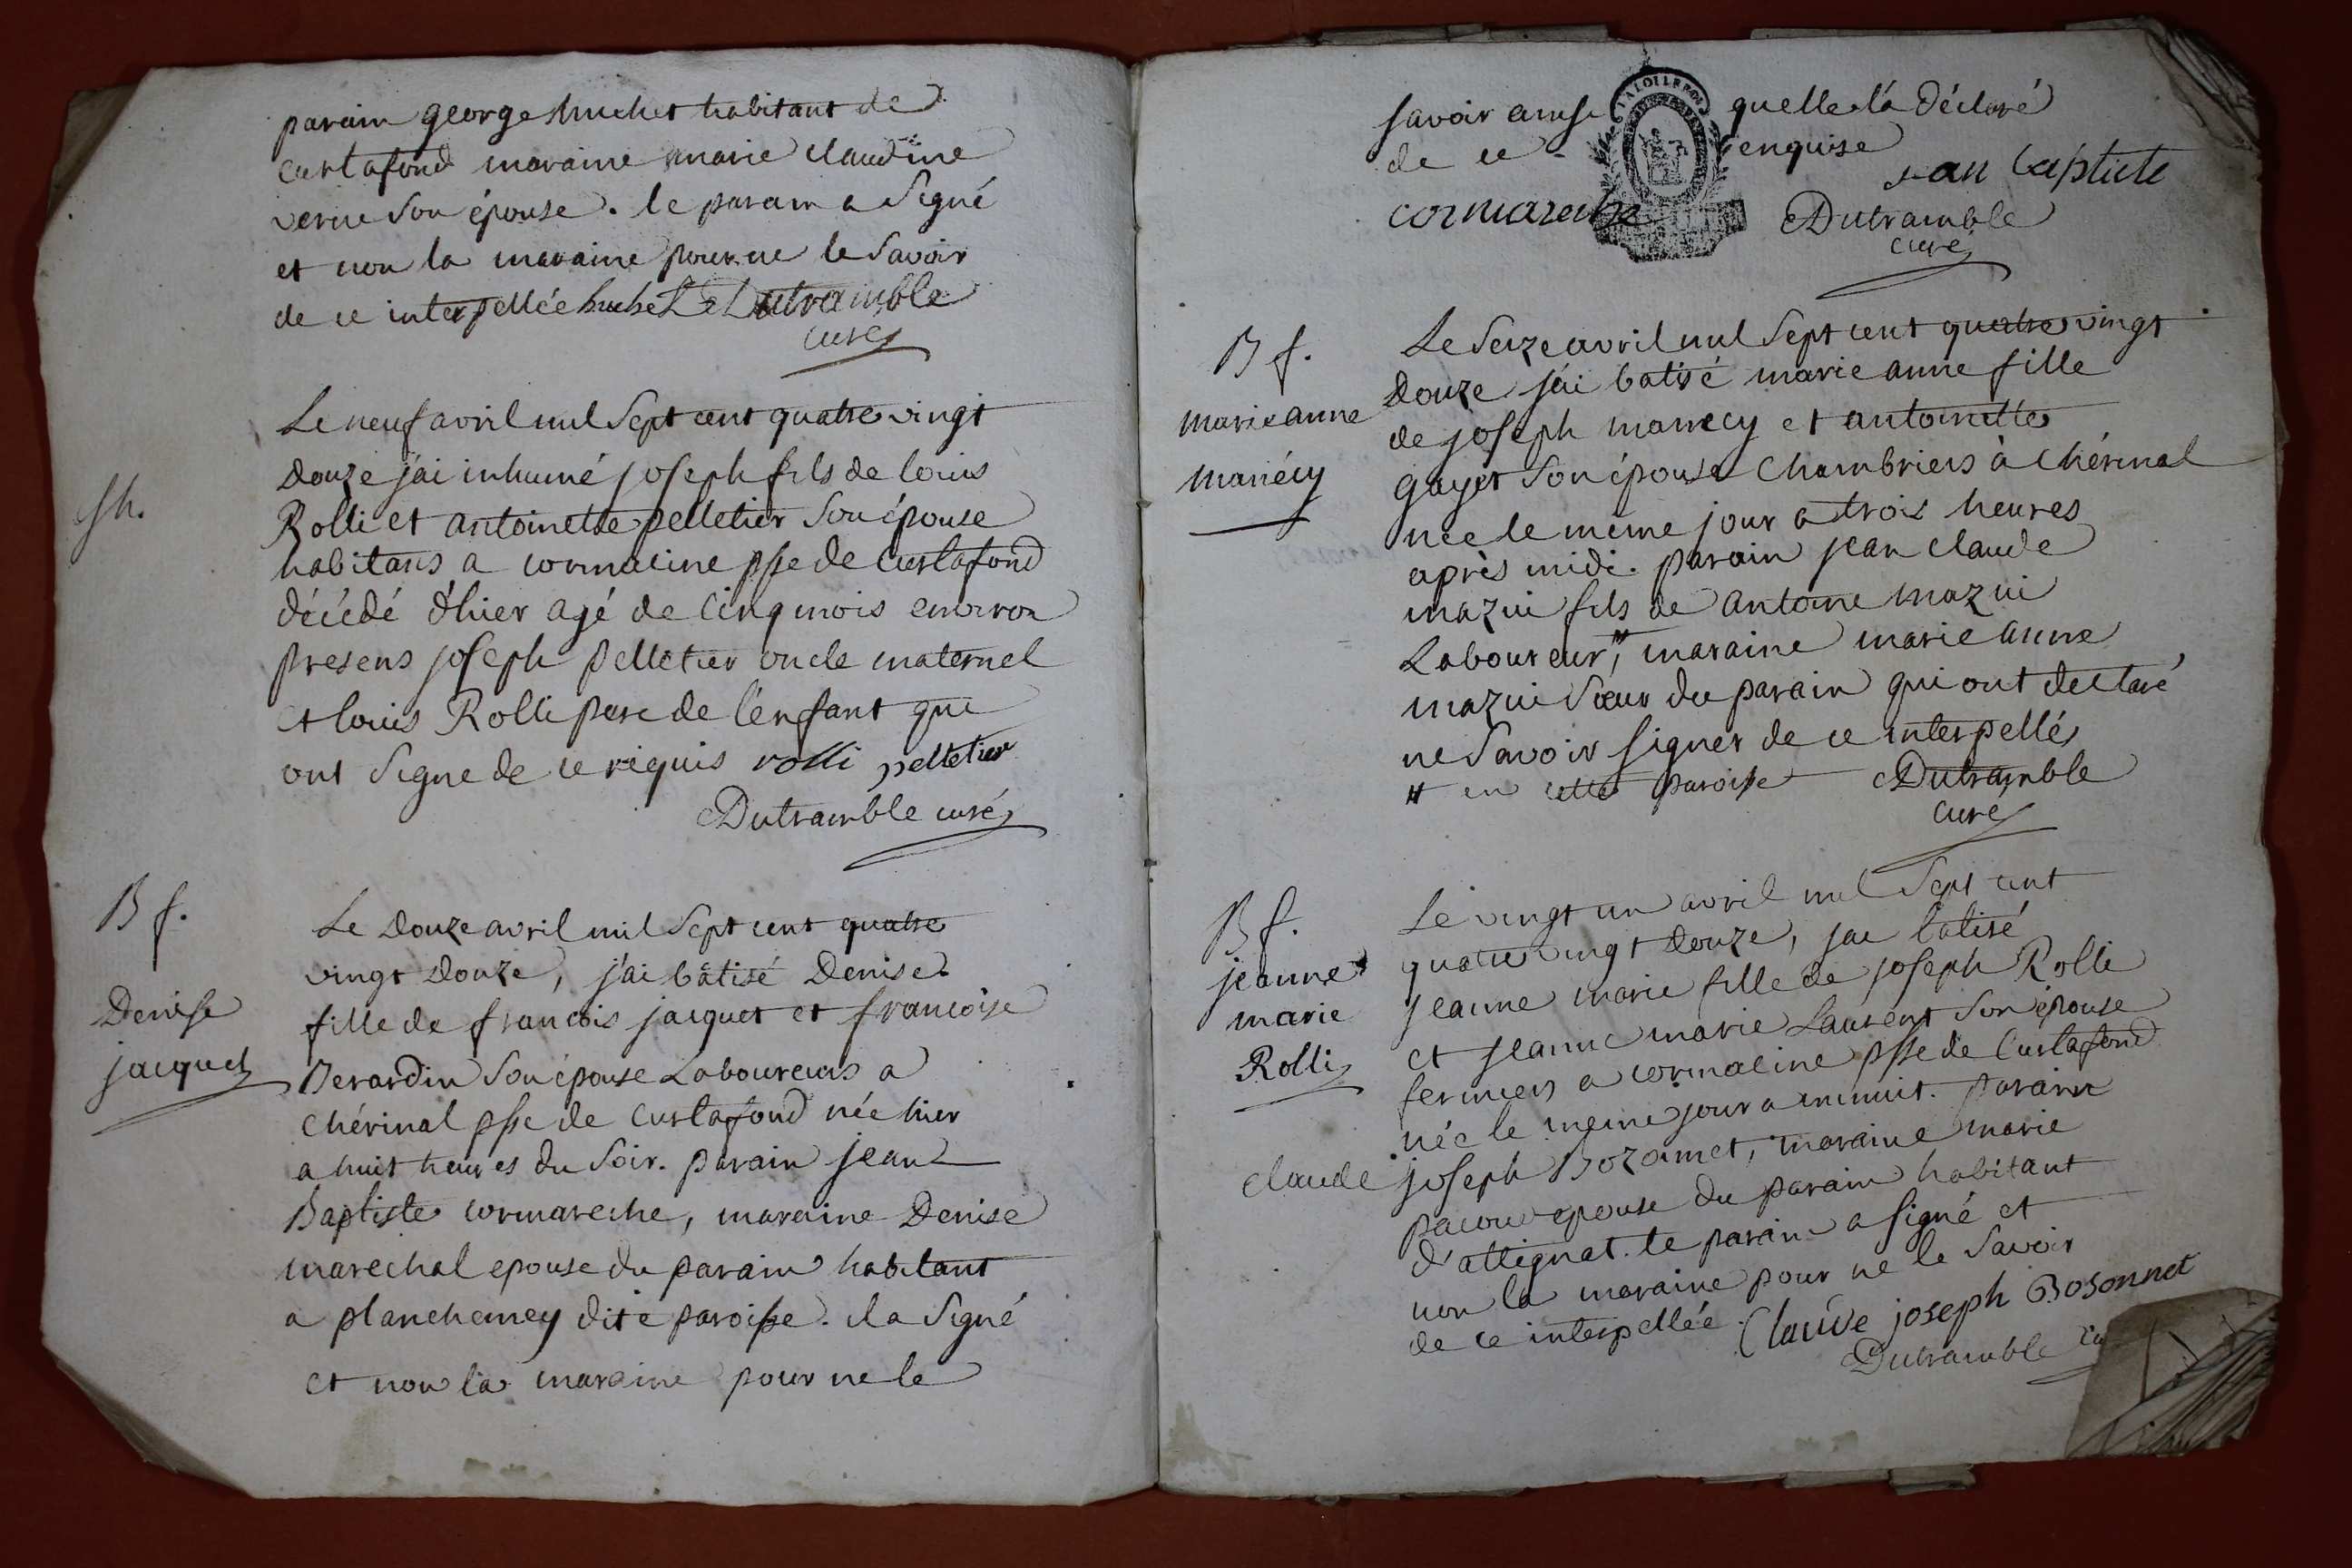 parain george huchet habitant de
curtafond maraine marie claudine
verne son épouse. le parain a Signé
et non la maraine pour ne le Savoir
de ce interpellée huchet Dutramble
curé
Le neuf avril mil Sept cent quatre vingt
Douze j'ai inhumé joseph fils de louis
Rolli et antoinette pelletier Son épouse
habitans a cormacine psse de Curtafond
décédé d'hier agé de Cinq mois environ
presens joseph pelletier oncle maternel
et louis Rolli pere de l'enfant qui
ont Signe de ce requis rolli pelletier
Dutramble curé
Sh.
B f.
Denise
jacquet
Le Douze avril mil Sept cent quatre
vingt Douze, j'ai bâtisé Denise
fille de francois jacquet et francoise
Berardin Son épouse Laboureurs a
Chérinal psse de Curtafond née hier
a huit heures du Soir. parain jean
Baptiste cormareche, maraine Denise
marechal epouse du parain habitant
a planchemey dite paroisse. il a Signé
et non la maraine pour ne le
savoir ainsi quelle l'a Déclaré
de ce enquise
jean baptiste
cormareche Dutramble
curé
LA LOI LE ROI
B f.
marie anne
manécy
Le Seize avril mil Sept cent quatre vingt
Douze j'ai batisé marie anne fille
de joseph manecy et antoinette
gayet Son épouse Chambriers à Chérinal
née le même jour a trois heures
après midi. parain jean claude
mazui fils de antoine mazui
Laboureur #, maraine marie anne
mazui Sœur du parain qui ont declaré
ne Savoir Signer de ce interpellés
# en cette paroisse Dutramble
curé
B f.
jeanne
marie
Rolli
Le vingt un avril mil Sept cent
quatre vingt Douze, jai batisé
jeanne marie fille de joseph Rolli
et jeanne marie Laurent Son épouse
fermiers a cormacine psse de Curtafond
née le meme jour a minuit. parain
claude joseph Bozonnet, maraine marie
pacoud epouse du parain habitant
d'attignat. le parain a signé et
non la maraine pour ne le Savoir
de ce interpellée. Claude joseph Bosonnet
Dutramble